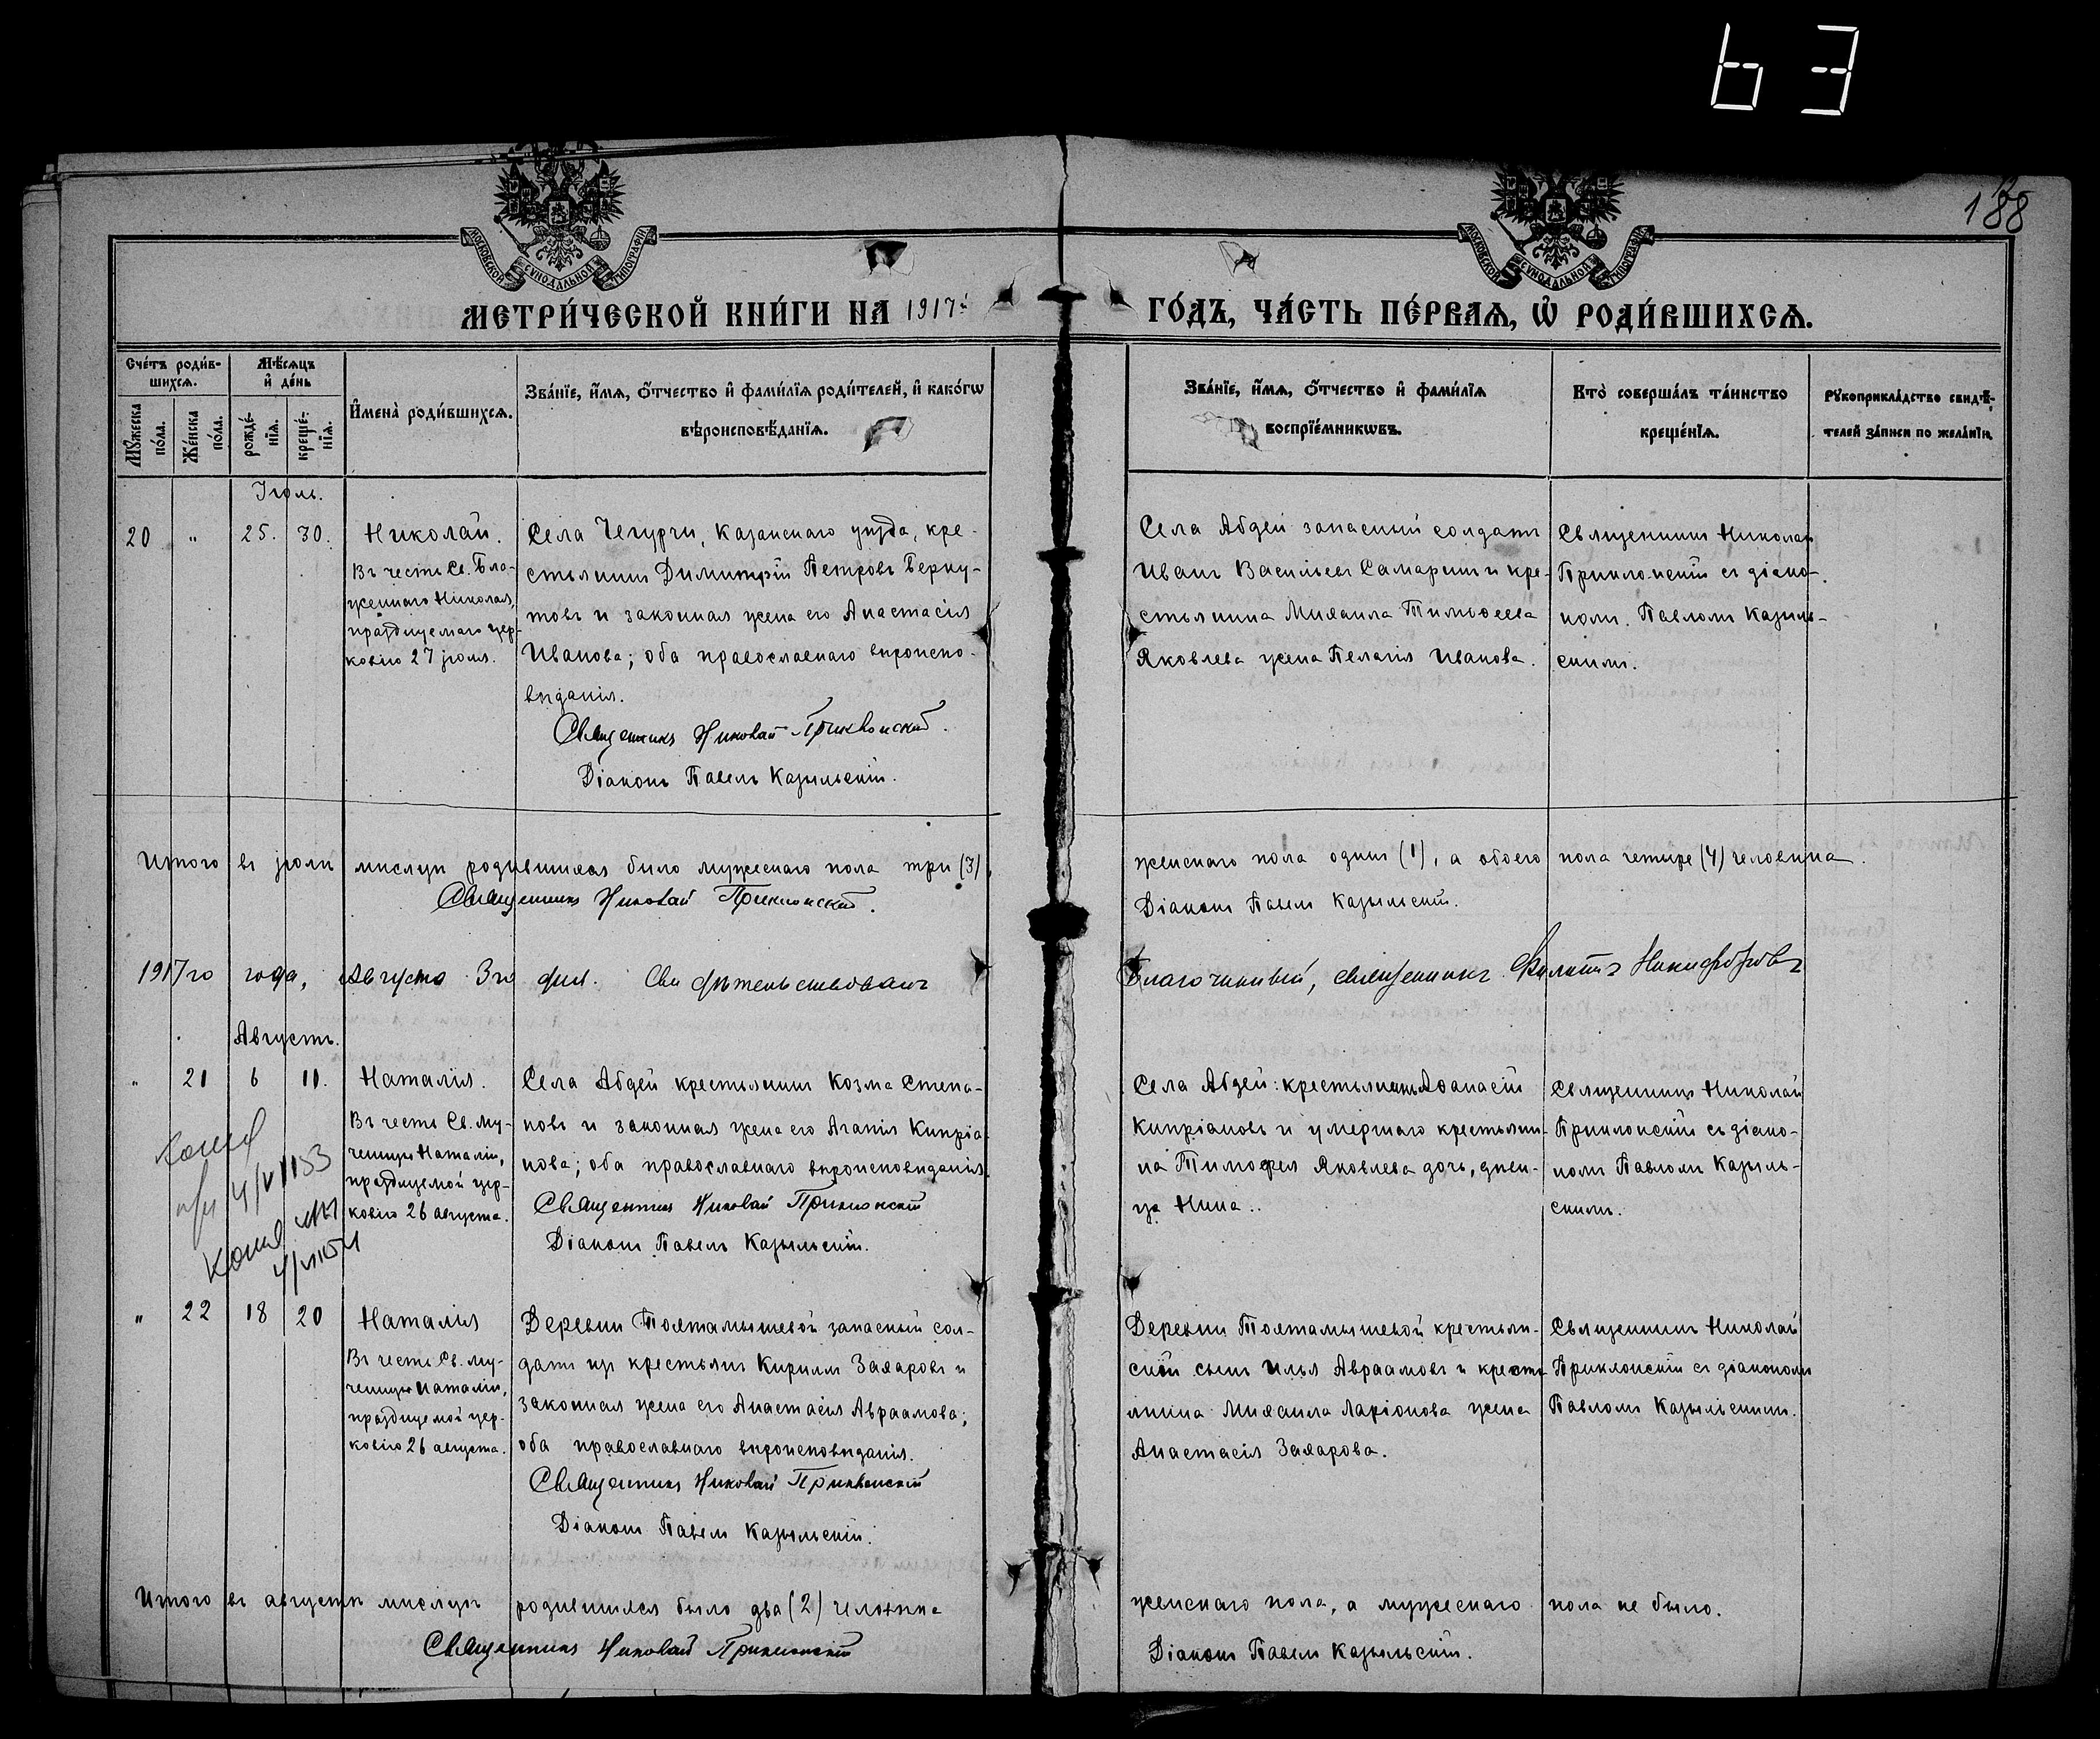 63
188
МОСКОВСКОЙ СУНОДАЛЬНОЙ ТИПОГРАФІИ
МОСКОВСКОЙ СУНОДАЛЬНОЙ ТИПОГРАФІИ
МЕТРИ́ЧЕСКОЙ КНИ́ГИ НА 1917й
ГО́ДЪ, ЧА́СТЬ ПЕ́РВАѦ, Ѡ҆ РОДИ́ВШИХСѦ.
Сче́тъ роди́в-
шихсѧ.
Мꙋ́жеска по́ла.
Же́нска по́ла.
Мѣ́сѧцъ и҆ де́нь
рожде́-
нїѧ.
креще́-
нїѧ.
И҆мена̀ роди́вшихсѧ.
Зва́нїе, и҆́мѧ, ѻ҆́тчество и҆ фами́лїѧ роди́телей, и҆ како́гѡ
вѣроисповѣ́данїѧ.
Зва́нїе, и҆́мѧ, ѻ҆́тчество и҆ фами́лїѧ
воспрїе́мникѡвъ.
Кто̀ соверша́лъ та́инство
креще́нїѧ.
Рꙋкоприкла́дство свидѣ́-
телей за́писи по жела́нїю.
Іюль.
20 " 25. 30.
Николай.
Въ честь Св. Бла-
женнаго Николая,
празднуемаго цер-
ковію 27 іюля.
Села Чегурчи, Казанскаго уѣзда, кре-
стьянинъ Димитрій Петровъ Верну-
товъ и законная жена его Анастасія
Иванова; оба православнаго вѣроиспо-
вѣданія.
Священникъ Николай Приклонскій.
Діаконъ Павелъ Казыльскій.
Села Абдей запасный солдатъ
Иванъ Васильевъ Самаринъ и кре-
стьянина Михаила Тимоѳеева
Яковлева жена Пелагія Иванова.
Священникъ Николай
Приклонскій съ діако-
номъ Павломъ Казыль-
скимъ.
Итого въ іюлѣ мѣсяцѣ родившихся было мужескаго пола три (3),
женскаго пола одинъ (1), а обоего пола четыре (4) человѣка.
Священникъ Николай Приклонскій.
Діаконъ Павелъ Казыльскій.
1917го года, Августа 3го дня. Свидѣтельствовалъ
Благочинный, священникъ Филиппъ Никифоровъ
Августъ.
" 21 6 11.
Наталія.
Въ честь Св. му-
ченицы Наталіи,
празднуемой цер-
ковію 26 августа.
Села Абдей крестьянинъ Козма Степа-
новъ и законная жена его Агапія Кипріа-
нова; оба православнаго вѣроисповѣданія.
Священникъ Николай Приклонскій
Діаконъ Павелъ Казыльскій.
Села Абдей: крестьянинъ Аѳанасій
Кипріановъ и умершаго крестьяни-
на Тимофея Яковлева дочь, дѣви-
ца Нина.
Священникъ Николай
Приклонскій съ діако-
номъ Павломъ Казыль-
скимъ.
Копия
Копия
" 22 18 20
Наталія
Въ честь Св. му-
ченицы Наталіи,
празднуемой цер-
ковію 26 августа.
Деревни Тохтамышевой запасный сол-
датъ изъ крестьянъ Кириллъ Захаровъ и
законная жена его Анастасія Авраамова;
оба православнаго вѣроисповѣданія.
Священникъ Николай Приклонскій
Діаконъ Павелъ Казыльскій.
Деревни Тохтамышевой крестьян-
скій сынъ Илья Авраамовъ и кресть-
янина Михаила Ларіонова жена
Анастасія Захарова.
Священникъ Николай
Приклонскій съ діакономъ
Павломъ Казыльскимъ.
Итого въ августѣ мѣсяцѣ родившихся было два (2) человѣка
женскаго пола, а мужескаго пола не было.
Священникъ Николай Приклонскій
Діаконъ Павелъ Казыльскій.